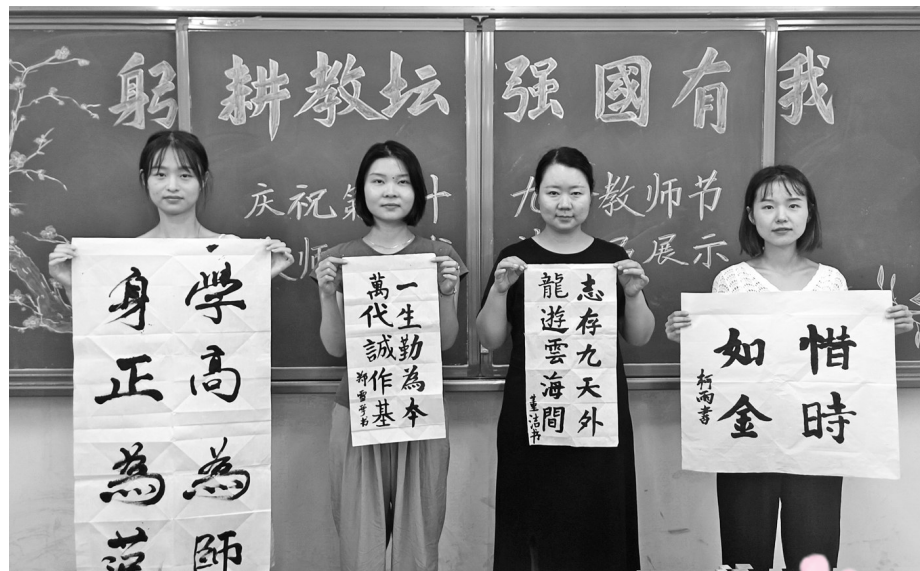 躬耕教坛 强國有我
庆祝第 十 九 教师节
师 展示
學高為師
身正為范
一生勤為本
萬代誠作基
志存九天外
龍遊雲海間
董洁书
惜時
如金
柯雨書